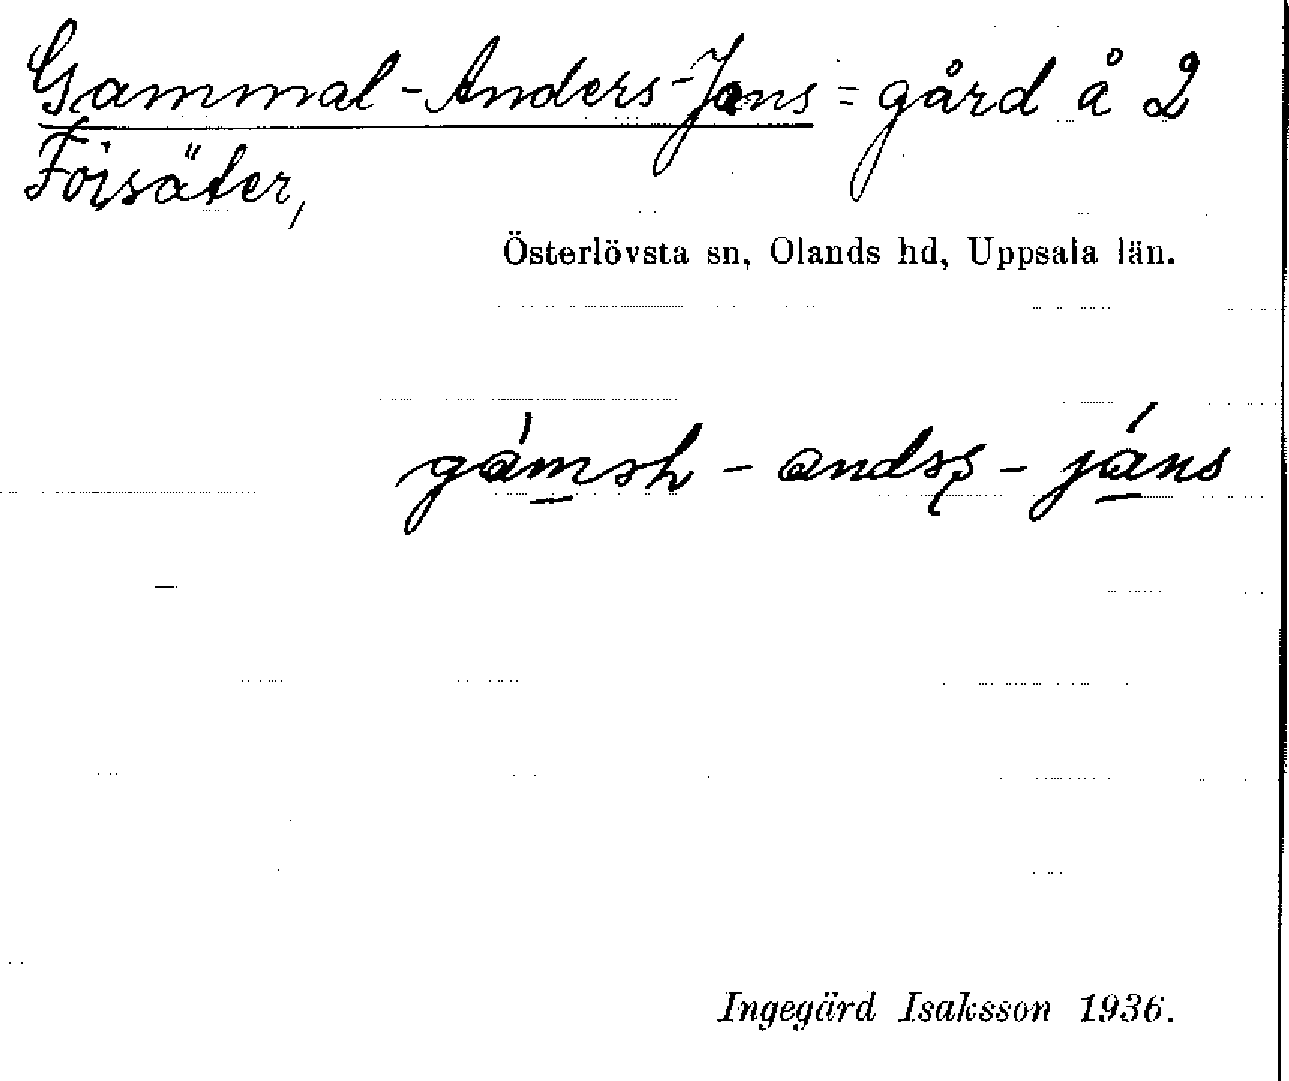 Gammal-Anders-Jans = gård å 2
Foisäter,
Österlövsta sn, Olands hd, Uppsala län.
Ingegärd Isaksson 1936.